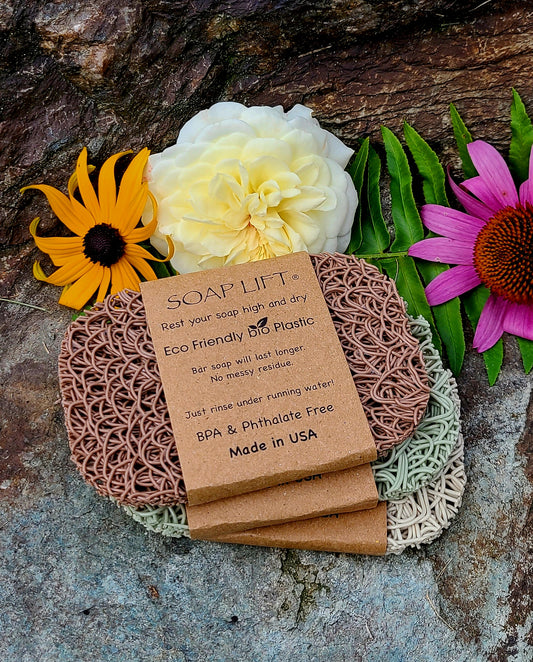 SOAP LIFT®
Rest your soap high and dry
Eco Friendly bio Plastic
Bar soap will last longer.
No messy residue.
Just rinse under running water!
BPA & Phthalate Free
Made in USA